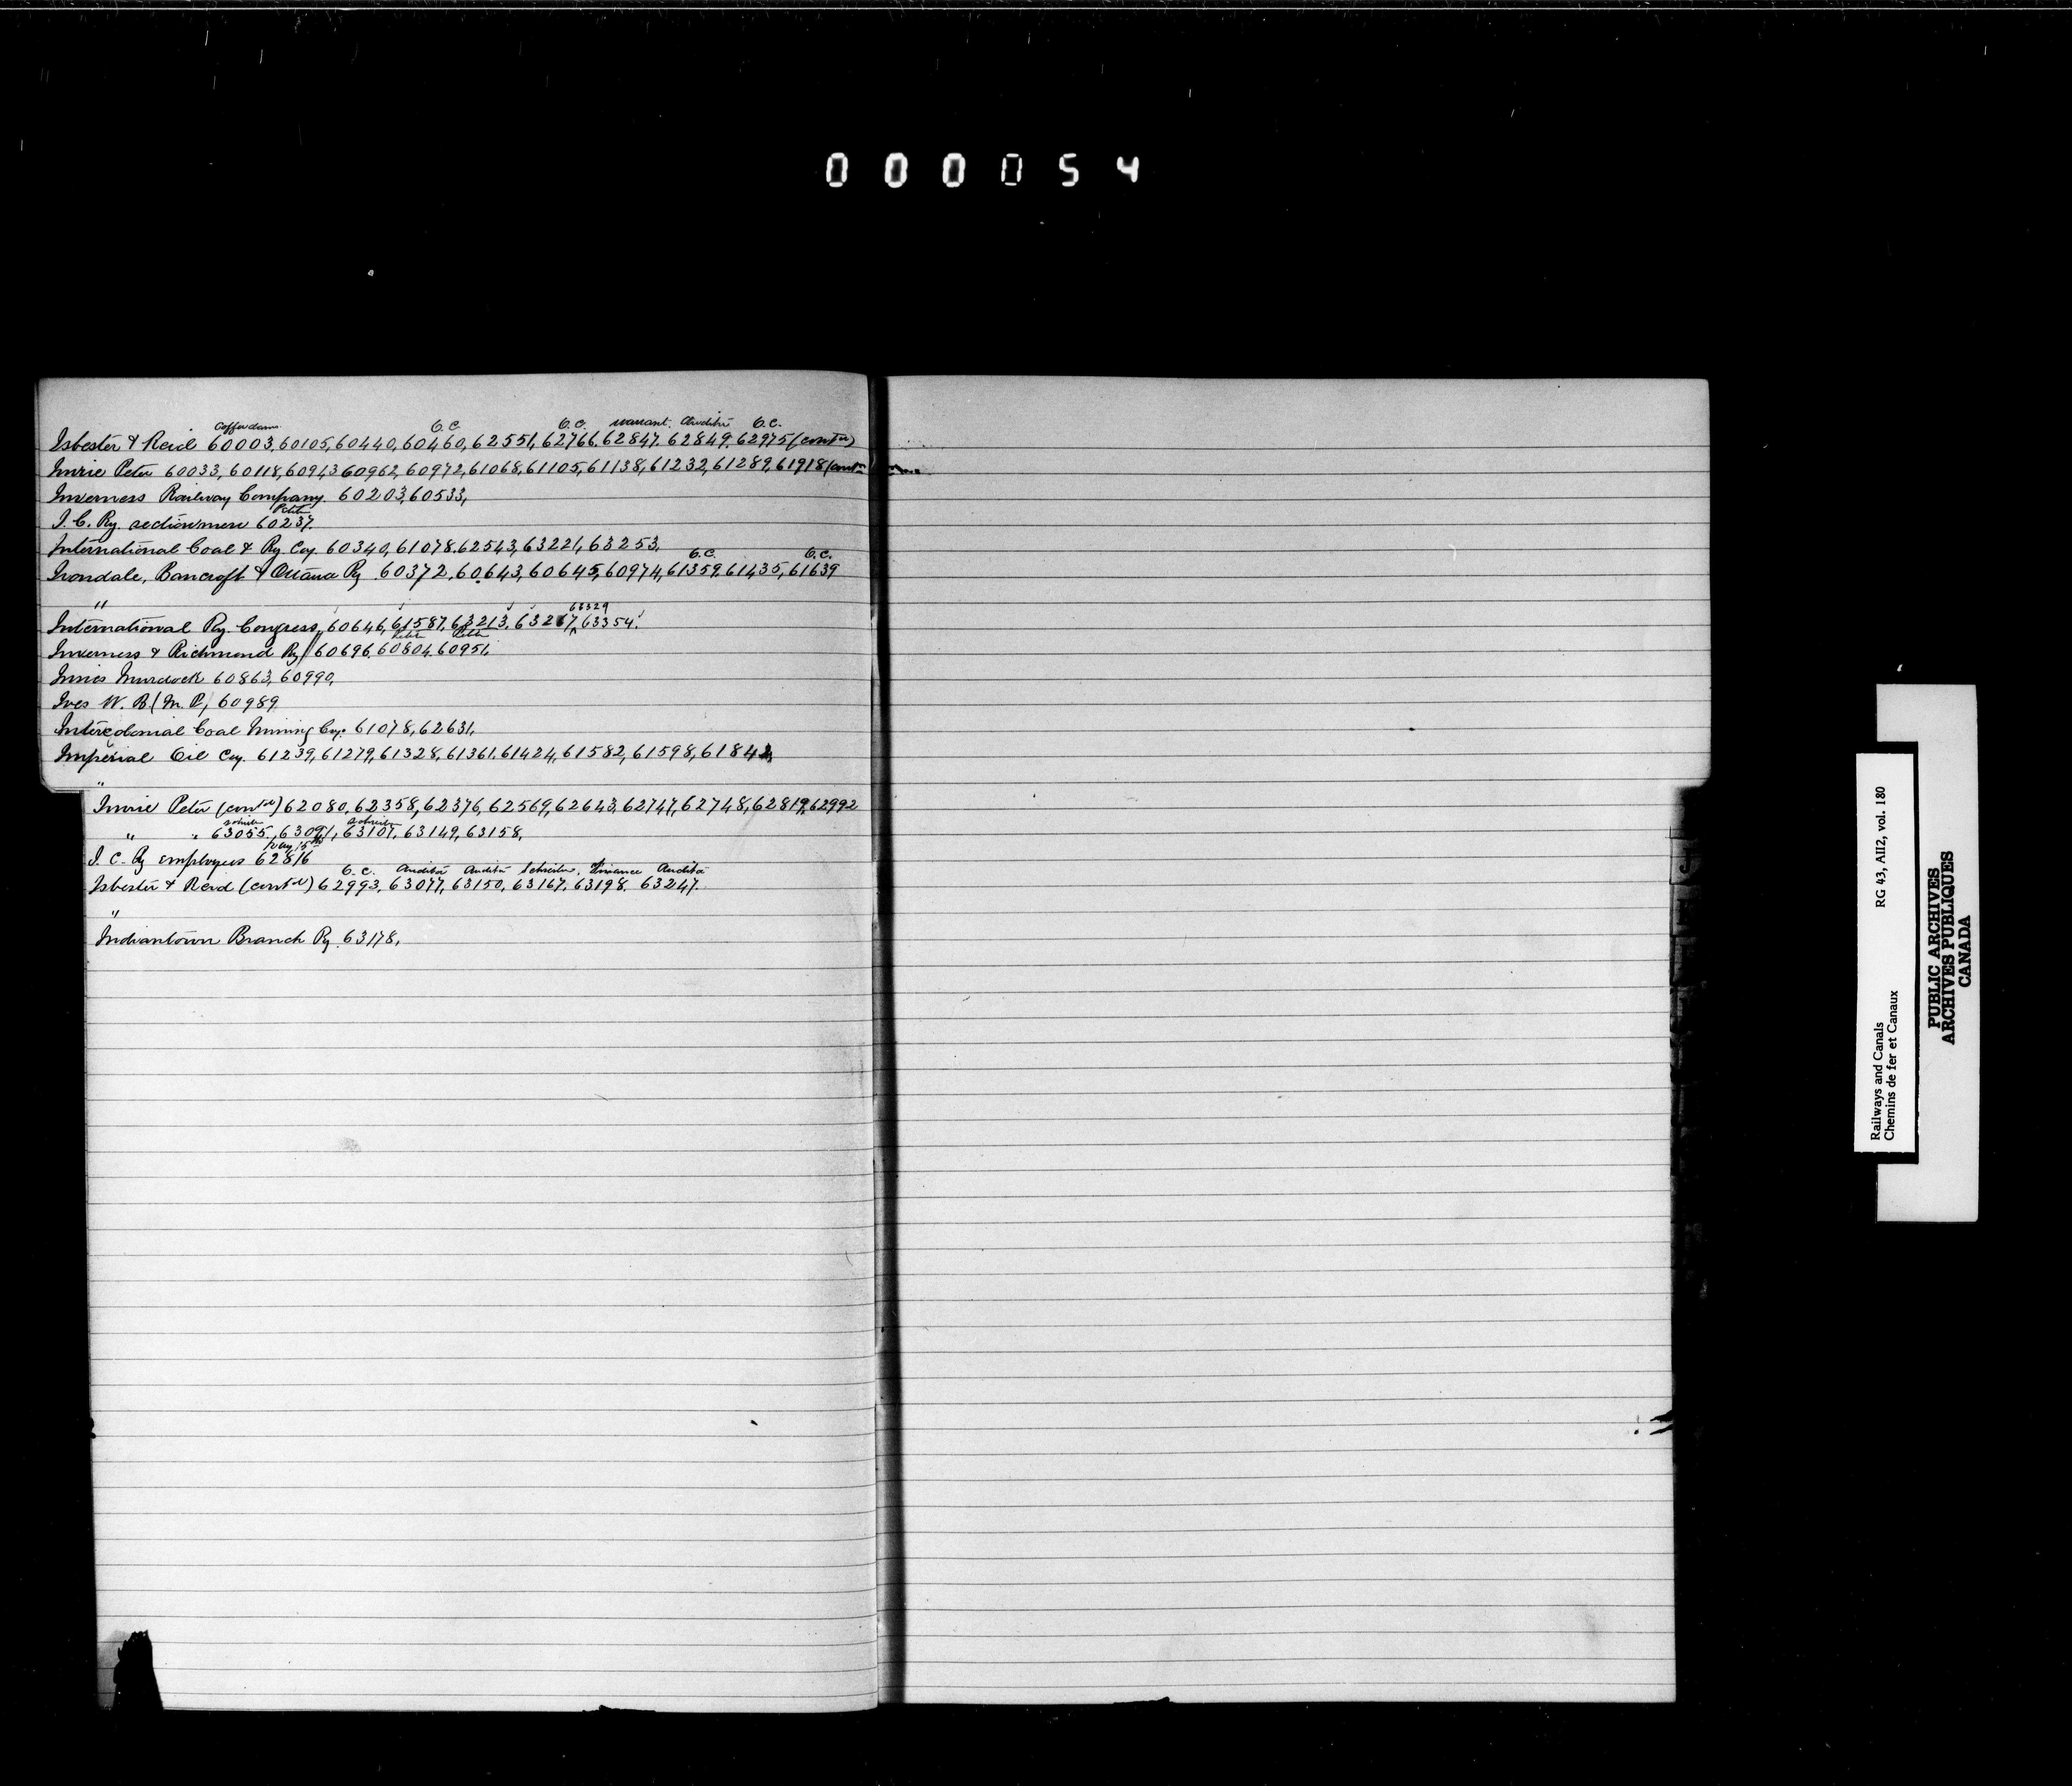 000054
Cofferdam O.C. O.C. warrant. Auditor O.C.
Isbester & Reid 60003, 60105, 60440, 60460, 62551, 62766, 62847, 62849, 62975 (contd)
Imrie Peter 60033, 60118, 60943 60962, 60972, 61068, 61105, 61138, 61232, 61289, 61918 (contd
Inverness Railway Company. 60203, 60533,
Petitn
I. C. Ry. sectionmen 60237.
International Coal & Ry Coy. 60340, 61078, 62543, 63221, 63253,
O.C. O.C.
Irondale, Bancroft & Ottawa Ry. 60372, 60643, 60645, 60974, 61359, 61435, 61639
"
66329
International Ry. Congress, 60646, 61587, 63213, 63267, 63354.
Inverness & Richmond Ry 60696, 60804, 60951,
Innis Murdock 60863, 60990,
Ives W. B. (M. P.) 60989
Intercolonial Coal Mining Coy. 61078, 62631,
Imperial Oil Coy. 61239, 61279, 61328, 61361, 61424, 61582, 61598, 61842,
"
Imrie Peter (contd) 62080, 62358, 62376, 62569, 62643, 62747, 62748, 62819, 62992
Schreiber
" " 63055, 63091, 63107, 63149, 63158,
I. C. Ry employees 62816
O.C. Auditor Auditor Schreiber, Finance Auditor
Isbester & Reid (contd) 62993, 63077, 63150, 63167, 63198, 63247.
"
Indiantown Branch Ry. 63178,
J
Railways and Canals RG 43, AII2, vol. 180
Chemins de fer et Canaux
PUBLIC ARCHIVES
ARCHIVES PUBLIQUES
CANADA